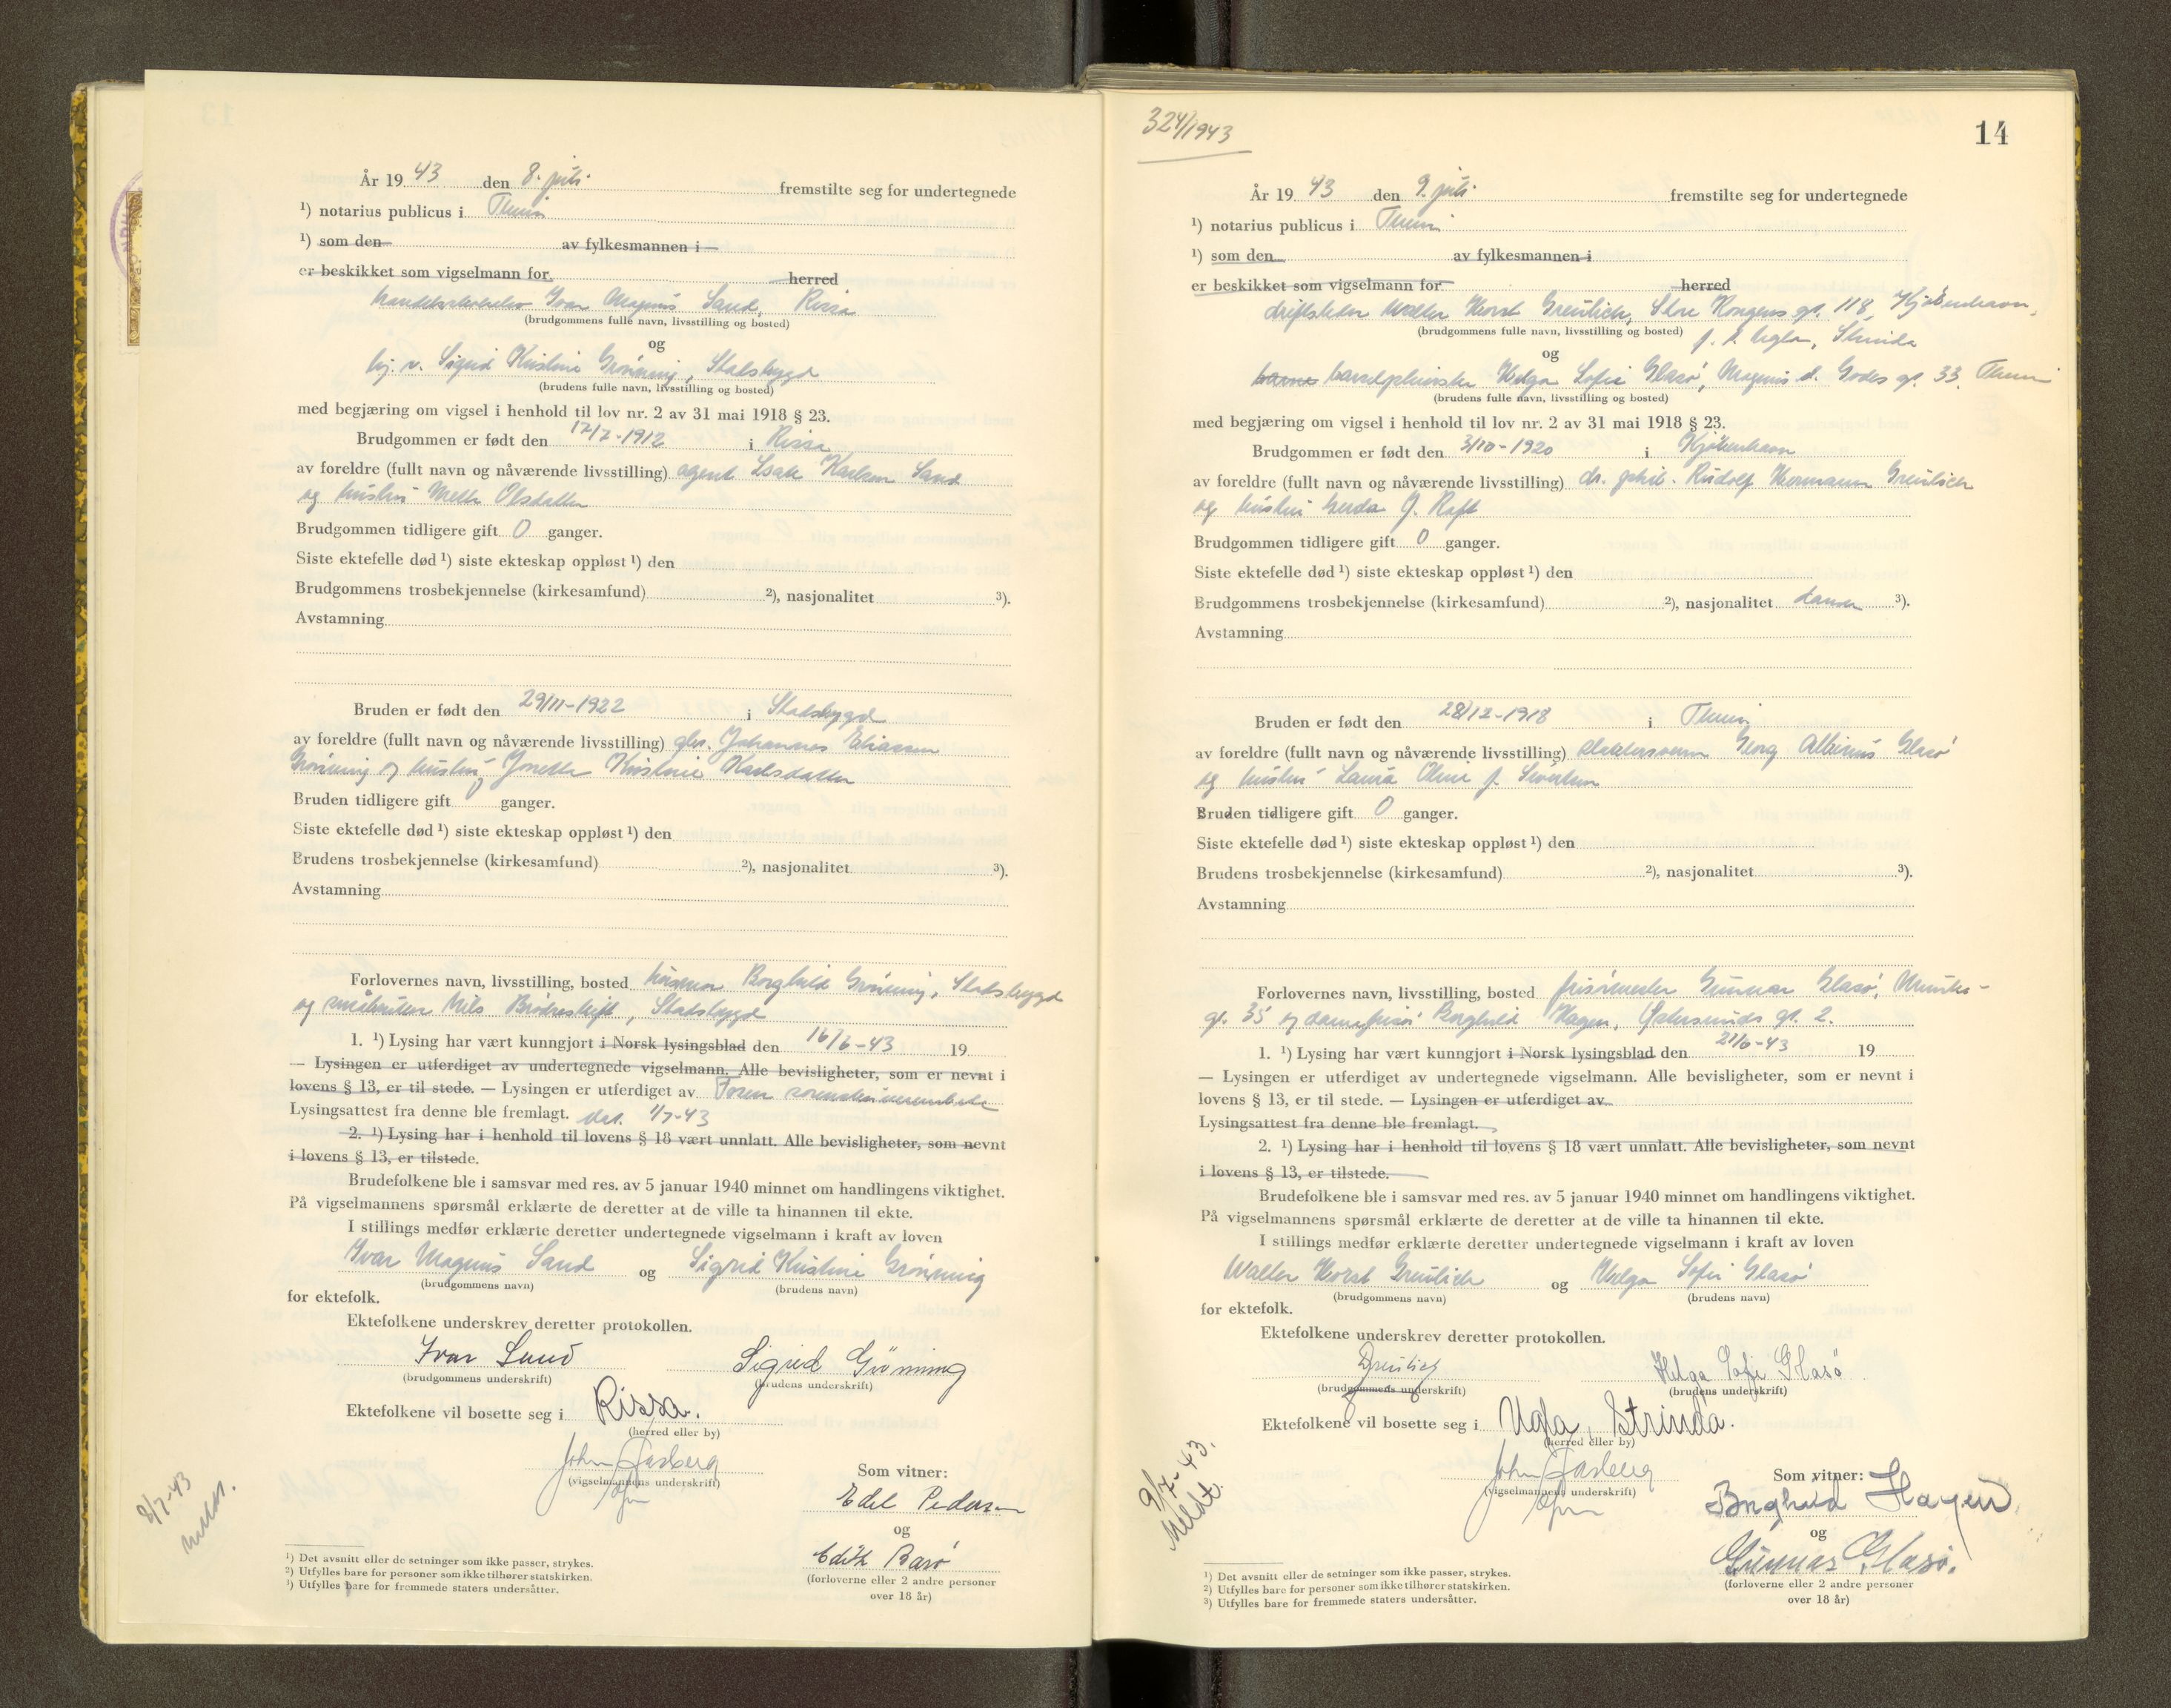 År 19 43 den 8. juli fremstilte seg for undertegnede
¹) notarius publicus i Theim
¹) som den av fylkesmannen i
er beskikket som vigselmann for herred
Ivar Magnus Sand, Rissa
(brudgommens fulle navn, livsstilling og bosted)
og
hj. v. Sigrid Kristine Grønning, Stadsbygd
(brudens fulle navn, livsstilling og bosted)
med begjæring om vigsel i henhold til lov nr. 2 av 31 mai 1918 § 23.
Brudgommen er født den 12/7-1912 i Rissa
av foreldre (fullt navn og nåværende livsstilling) agent Isak Karlsen Sand
og hustru Mette Olsdatter
Brudgommen tidligere gift 0 ganger.
Siste ektefelle død ¹) siste ekteskap oppløst ¹) den
Brudgommens trosbekjennelse (kirkesamfund) ²), nasjonalitet ³).
Avstamning
Bruden er født den 29/11-1922 i Stadsbygd
av foreldre (fullt navn og nåværende livsstilling) gbr. Johannes Eliassen
Grønning og hustru Jonette Kristine Karlsdatter
Bruden tidligere gift 0 ganger.
Siste ektefelle død ¹) siste ekteskap oppløst ¹) den
Brudens trosbekjennelse (kirkesamfund) ²), nasjonalitet ³).
Avstamning
Forlovernes navn, livsstilling, bosted Borghild Grønning, Stadsbygd
og småbruker Nils Brødreskift, Stadsbygd
1. ¹) Lysing har vært kunngjort i Norsk lysingsblad den 16/6-43 19
— Lysingen er utferdiget av undertegnede vigselmann. Alle bevisligheter, som er nevnt i
lovens § 13, er til stede. — Lysingen er utferdiget av Fosen sorenskriverembete
Lysingsattest fra denne ble fremlagt. dat. 1/7-43
2. ¹) Lysing har i henhold til lovens § 18 vært unnlatt. Alle bevisligheter, som nevnt
i lovens § 13, er tilstede.
Brudefolkene ble i samsvar med res. av 5 januar 1940 minnet om handlingens viktighet.
På vigselmannens spørsmål erklærte de deretter at de ville ta hinannen til ekte.
I stillings medfør erklærte deretter undertegnede vigselmann i kraft av loven
Ivar Magnus Sand og Sigrid Kristine Grønning
(brudgommens navn) (brudens navn)
for ektefolk.
Ektefolkene underskrev deretter protokollen.
Ivar Sand Sigrid Grønning
(brudgommens underskrift) (brudens underskrift)
Ektefolkene vil bosette seg i Rissa.
(herred eller by)
John Aasberg
(vigselmannens underskrift)
Som vitner:
Edel Pedersen
og
Edith Basø
(forloverne eller 2 andre personer
over 18 år)
8/7-43
meldt.
¹) Det avsnitt eller de setninger som ikke passer, strykes.
²) Utfylles bare for personer som ikke tilhører statskirken.
³) Utfylles bare for fremmede staters undersåtter.
324/1943
14
År 19 43 den 9. juli fremstilte seg for undertegnede
¹) notarius publicus i Theim
¹) som den av fylkesmannen i
er beskikket som vigselmann for herred
driftsleder Walter Horst Greulich, Store Kongens gt. 118, Kjøbenhavn,
(brudgommens fulle navn, livsstilling og bosted) f. t. Ugla, Strinda
og
barnes barselpleierske Helga Sofie Glasø, Magnus d. Godes gt. 33, Theim
(brudens fulle navn, livsstilling og bosted)
med begjæring om vigsel i henhold til lov nr. 2 av 31 mai 1918 § 23.
Brudgommen er født den 3/10-1920 i Kjøbenhavn
av foreldre (fullt navn og nåværende livsstilling) dr. phil. Rudolf Hermann Greulich
og hustru Gerda J. Raft
Brudgommen tidligere gift 0 ganger.
Siste ektefelle død ¹) siste ekteskap oppløst ¹) den
Brudgommens trosbekjennelse (kirkesamfund) ²), nasjonalitet dansk ³).
Avstamning
Bruden er født den 28/12-1918 i Theim
av foreldre (fullt navn og nåværende livsstilling) slaktersvenn Georg Albinus Glasø
og hustru Laura Oline f. Sivertsen
Bruden tidligere gift 0 ganger.
Siste ektefelle død ¹) siste ekteskap oppløst ¹) den
Brudens trosbekjennelse (kirkesamfund) ²), nasjonalitet ³).
Avstamning
Forlovernes navn, livsstilling, bosted frisørmester Gunnar Glasø, Munke-
gt. 35 og damefrisør Borghild Hagen, Østersunds gt. 2.
1. ¹) Lysing har vært kunngjort i Norsk lysingsblad den 21/6-43 19
— Lysingen er utferdiget av undertegnede vigselmann. Alle bevisligheter, som er nevnt i
lovens § 13, er til stede. — Lysingen er utferdiget av
Lysingsattest fra denne ble fremlagt.
2. ¹) Lysing har i henhold til lovens § 18 vært unnlatt. Alle bevisligheter, som nevnt
i lovens § 13, er tilstede.
Brudefolkene ble i samsvar med res. av 5 januar 1940 minnet om handlingens viktighet.
På vigselmannens spørsmål erklærte de deretter at de ville ta hinannen til ekte.
I stillings medfør erklærte deretter undertegnede vigselmann i kraft av loven
Walter Horst Greulich og Helga Sofie Glasø
(brudgommens navn) (brudens navn)
for ektefolk.
Ektefolkene underskrev deretter protokollen.
Greulich Helga Sofie Glasø
(brudgommens underskrift) (brudens underskrift)
Ektefolkene vil bosette seg i Ugla, Strinda.
(herred eller by)
John Aasberg
(vigselmannens underskrift)
Som vitner:
Borghild Hagen
og
Gunnar Glasø.
(forloverne eller 2 andre personer
over 18 år)
9/7-43.
Meldt.
¹) Det avsnitt eller de setninger som ikke passer, strykes.
²) Utfylles bare for personer som ikke tilhører statskirken.
³) Utfylles bare for fremmede staters undersåtter.